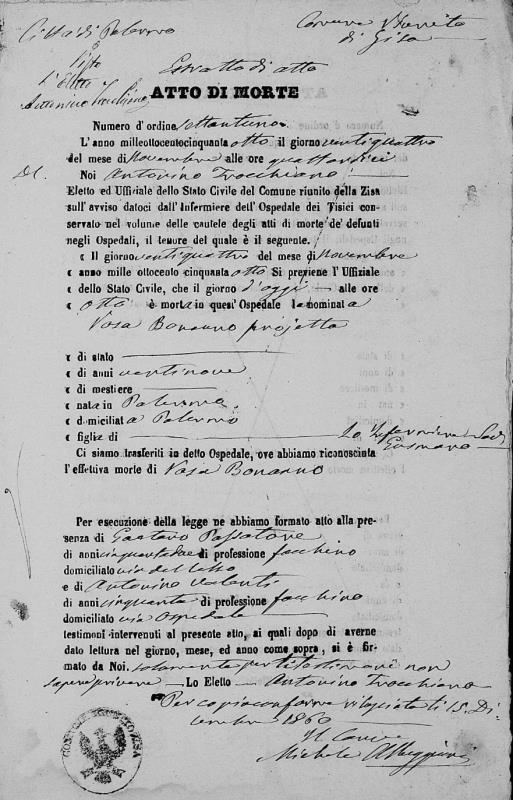 Città di Palermo
Comune Riunito
di Zisa
Visto
L'Eletto
Antonino Trocchiano
Estratto di atto
ATTO DI MORTE
Numero d'ordine settantuno
L'anno milleottocentocinquanta otto il giorno ventiquattro
del mese di Novembre alle ore quattordici
Noi Antonino Trocchiano
Eletto ed Uffiziale dello Stato Civile del Comune riunito della Zisa
sull'avviso datoci dall'Infermiere dell'Ospedale dei Tisici con
conservato nel volume delle cautele degli atti di morte de' defunti
negli Ospedali, il tenore del quale è il seguente.
« Il giorno ventiquattro del mese di Novembre
« anno mille ottocento cinquanta otto Si previene l'Uffiziale
« dello Stato Civile, che il giorno d'oggi alle ore
« otto è morta in quest'Ospedale la nominata
Rosa Bonanno projetta
« di stato
« di anni ventinove
« di mestiere
« nata in Palermo
« domiciliata Palermo
« figlia di
Lo Infermiere
Ci siamo trasferiti in detto Ospedale, ove abbiamo riconosciuta
l'effettiva morte di Rosa Bonanno
Per esecuzione della legge ne abbiamo formato atto alla pre-
senza di Gaetano Passatore
di anni cinquantadue di professione facchino
domiciliato via del
e di Antonino Valenti
di anni cinquanta di professione facchino
domiciliato via Ospedale
testimoni intervenuti al presente atto, ai quali dopo di averne
dato lettura nel giorno, mese, ed anno come sopra, si è fir-
mato da Noi. solamente per i testimoni non
sapere scrivere Lo Eletto Antonino Trocchiano
Per copia conforme rilasciata li 15 Di-
cembre 1860
Michele